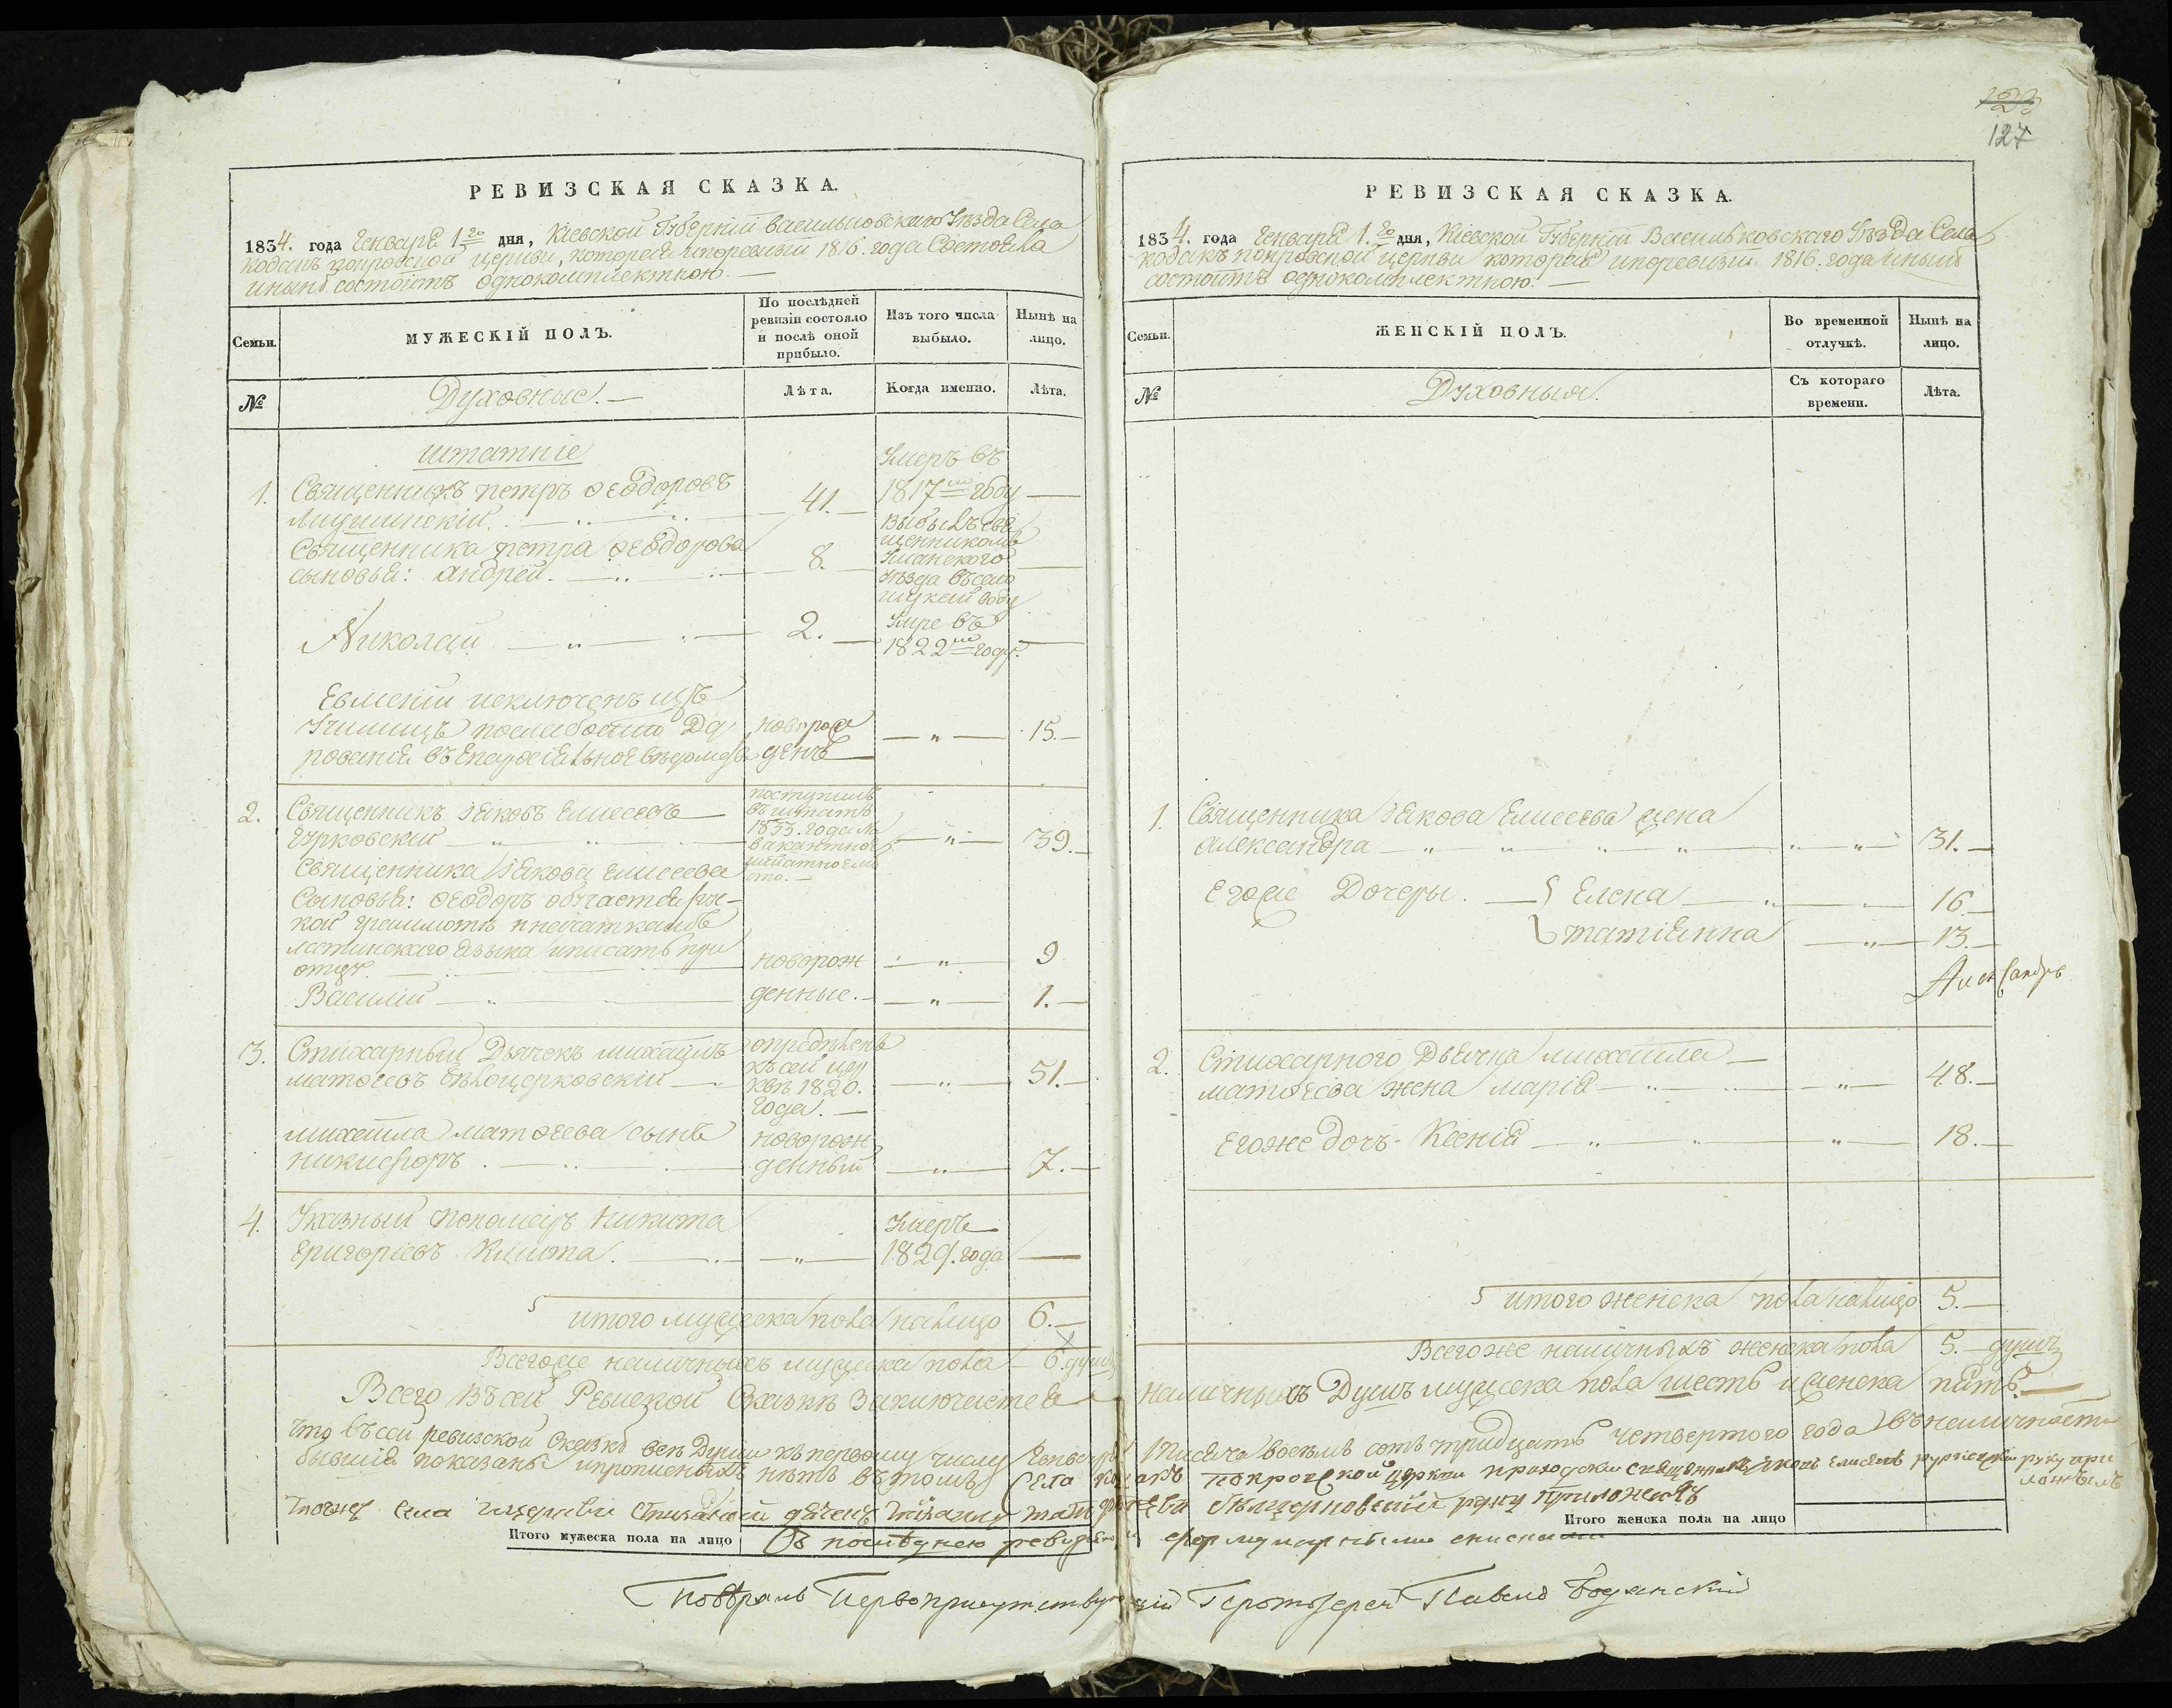 РЕВИЗСКАЯ СКАЗКА.
1834. года Генваря 1го дня, Кіевской Губерніи Васильковскаго Уѣзда Села
Кодакъ покровской церкви, которая ипоревизіи 1816. года Состояла
инынѣ состоитъ однокомплектною. —
Семьи.
МУЖЕСКІЙ ПОЛЪ.
По послѣдней ревизіи состояло и послѣ оной прибыло.
Изъ того числа выбыло.
Нынѣ на лицо.
№
Духовные. —
Лѣта.
Когда именно.
Лѣта.
штатніе
1. Священникъ петръ Ѳеодоровъ
41. Умеръ въ 1817мъ году —
Священника петра Ѳеодорова
сыновья: андрей. 8. Выбылъ священникомъ Уманского Уѣзда въ село
Николай 2. Умре въ 1822мъ году.
Евменій исключенъ изъ
Училищъ
новорожденъ — " — 15. —
2. Священникъ Іяковъ Елисеевъ
поступилъ въ штатъ 1833. года — " — 39. —
Священника Іякова Елисеева
сыновья: Ѳеодоръ обучается рус-
кой грамотѣ
латинскаго языка иписать при
отцѣ. новорож — " — 9
Василій — " — денные. — " — 1. —
3. Стихарный Дьячекъ михаилъ
матѳеевъ бѣлоцерковскій
опредѣленъ къ сей церквѣ 1820. года. — — " — 51. —
михаила матѳеева сынъ
никифоръ. новорожденный — " — 7. —
4. Указный пономарь Никита
Григоріевъ Клиота. — " — Умеръ 1829. года —
итого мужеска пола налицо 6. —
Всегоже наличныхъ мужеска пола — 6. душъ
РЕВИЗСКАЯ СКАЗКА.
1834. года Генваря 1.го дня, Кіевской Губерніи Васильковскаго Уѣзда Села
Кодакъ покровской церкви которая ипоревизіи 1816. года инынѣ
состоитъ однокомплектною. —
Семьи.
ЖЕНСКІЙ ПОЛЪ.
Во временной отлучкѣ.
Нынѣ на лицо.
№
Духовныя.
Съ котораго времени.
Лѣта.
1. Священника Іякова Елисеева жена
александра — " — 31. —
Егоже Дочеры. — Елена — " — 16. —
татіянна — " — 13. —
Александръ
2. Стихарного Дьячка михаила —
матѳеева жена марія — " — 48. —
Егоже дочь Ксенія — " — 18. —
итого женска пола налицо 5. —
Всегоже наличныхъ женска пола 5. — душъ
Всего Въсей Ревизской Сказкѣ Заключается наличныхъ Душъ мужеска пола шесть иженска пять. —
что въсей ревизской сказкѣ всѣ Души къ первому числу Генваря 1тысяча восемь сотъ тридцать четвертого года въналичности
бывшія показаны ипрописныхъ нѣтъ втомъ Села Кодакъ покровской церкви приходскій священникъ Іяковъ Елисеевъ руку при
ложилъ
Тогожъ села ицеркви дячекъ Михаилъ Матфеевъ Бѣлоцерковскій руку приложилъ
Итого мужеска пола на лицо
Итого женска пола на лицо
формулярными списками
Повѣрялъ Первоприсутствующій Протоіерей Павелъ
127